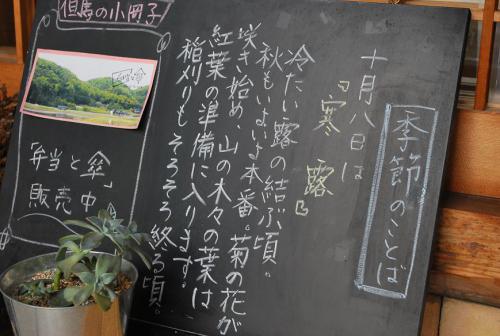 季節のことば
十月八日は
『寒露』
冷たい露の結ぶ頃。
秋もいよいよ本番。菊の花が
咲き始め、山の木々の葉は
紅葉の準備に入ります。
稲刈りもそろそろ終る頃。
但馬の小岡子
「弁当と傘」
販売中